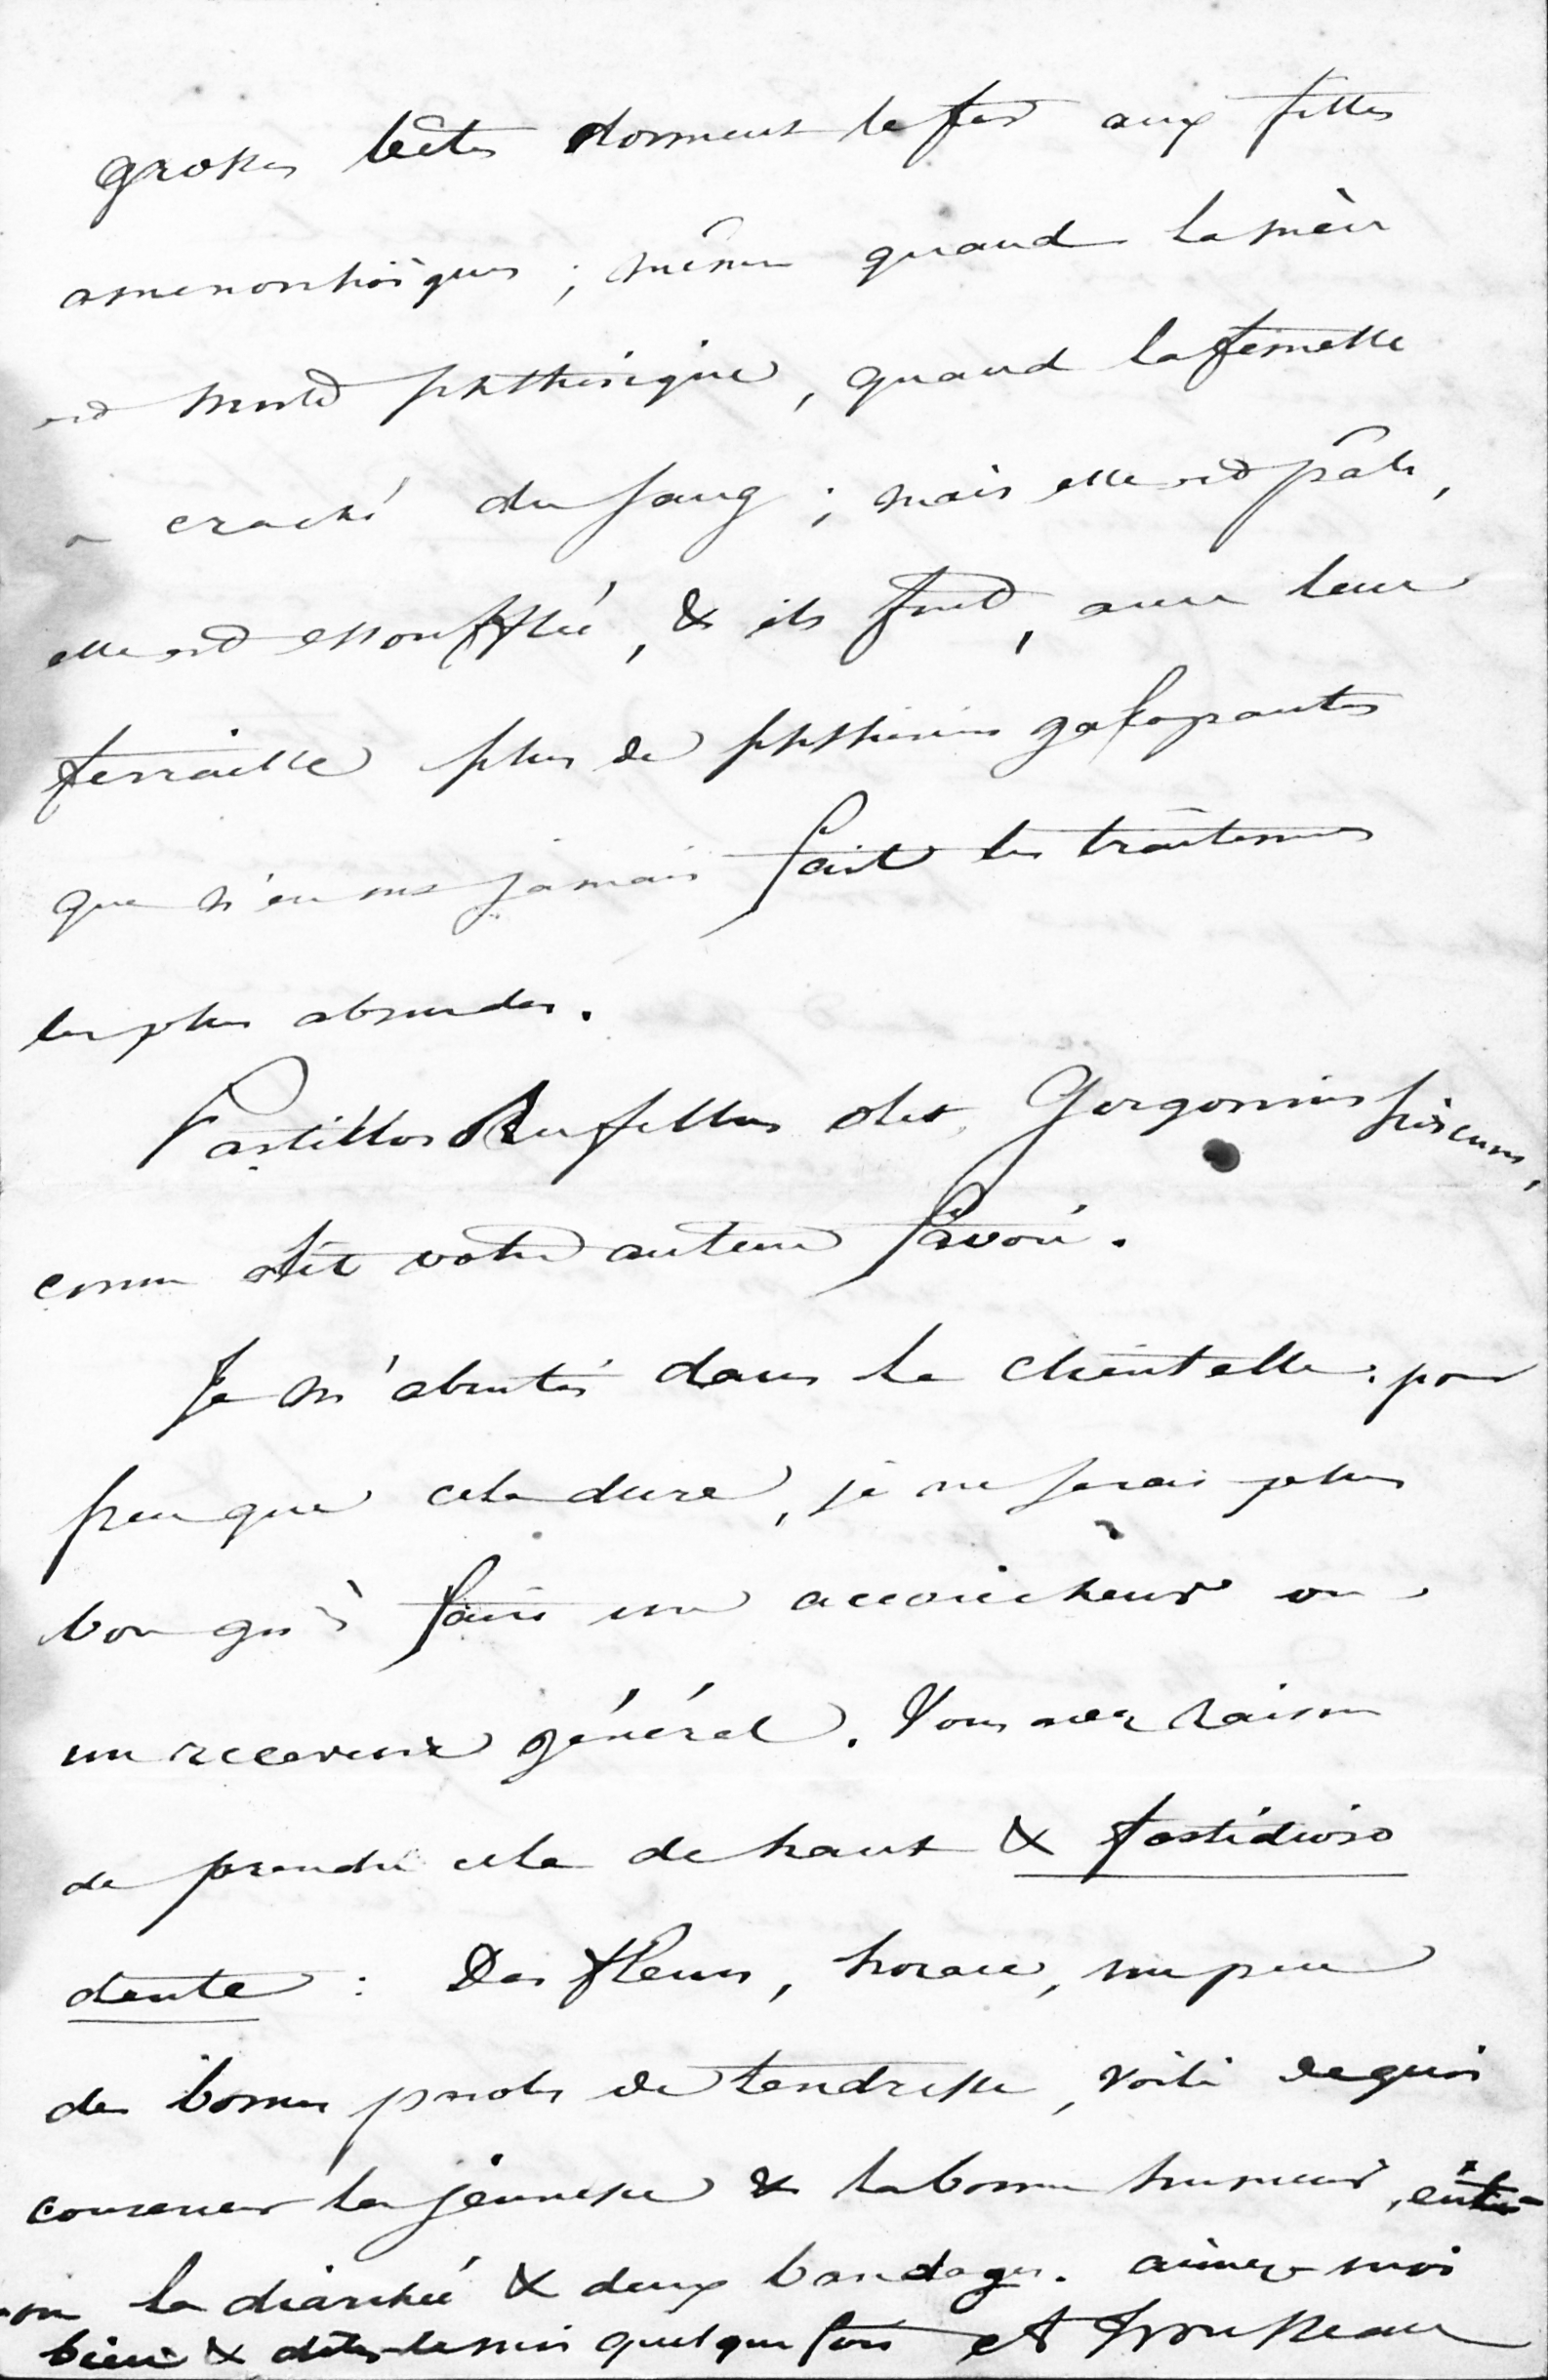 grosses bêtes donnent le fer aux filles
amenorrhoïques ; même quand la mère
est morte phthisique, quand la femelle
a craché du sang ; mais elle est pâle,
elle est essoufflée, & ils font, avec leur
ferraille plus de phthisies galopantes
que n'en ont jamais fait les traitemens
les plus absurdes.
Pastillos Rufillus olet, Gorgonius hircum,
comme dit votre auteur favori.
Je m'abrutis dans la clientelle : pour
peu que cela dure, je ne serai plus
bon qu'à faire un accoucheur ou
un receveur général. Vous avez raison
de prendre cela de haut & fastidioso
dente : Des fleurs, horace, un peu
de bonnes paroles de tendresse, voilà de quoi
conserver la jeunesse & la bonne humeur,
la diarrhée & deux bandages. aimez-moi
bien & dites-le moi quelque fois A Trousseau